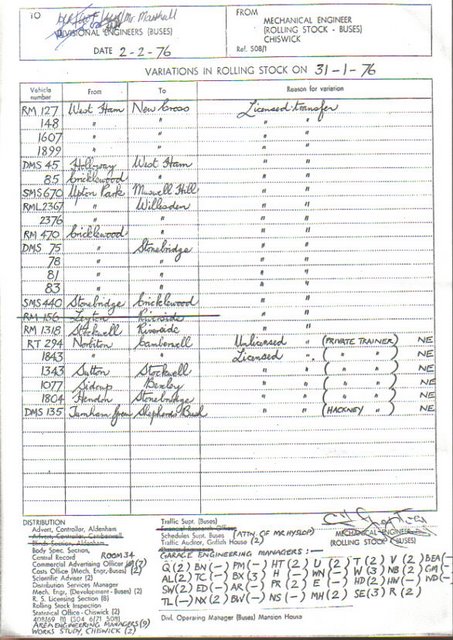 TO Mr. Marshall
DIVISIONAL ENGINEERS (BUSES)
DATE 2-2-76
FROM
MECHANICAL ENGINEER
(ROLLING STOCK - BUSES)
CHISWICK
Ref. 508/1
VARIATIONS IN ROLLING STOCK ON 31-1-76
Vehicle number From To Reason for variation
RM 127 West Ham New Cross Licensed transfer
148 " " " "
1607 " " " "
1899 " " " "
DMS 45 Holloway West Ham " "
85 Cricklewood " " "
SMS 670 Upton Park Muswell Hill " "
RML 2367 " Willesden " "
2376 " " " "
RM 470 Cricklewood " " "
DMS 75 " Stonebridge " "
78 " " " "
81 " " " "
83 " " " "
SMS 440 Stonebridge Cricklewood " "
RM 156 Leyton Riverside
RM 1318 Stockwell Riverside "
RT 294 Norbiton Camberwell Unlicensed " (PRIVATE TRAINER) NE
1843 " " Licensed " ( " " ) NE
1343 Sutton Stockwell " " ( " " ) NE
1077 Sidcup Bexley " " ( " " ) NE
1804 Hendon Stonebridge " " ( " " ) NE
DMS 135 Turnham Green Shepherds Bush " " (HACKNEY " ) NE
MECHANICAL ENGINEER
(ROLLING STOCK - BUSES)
DISTRIBUTION
Advert. Controller, Aldenham
Advert. Controller, Camberwell
Blinds Section, Aldenham
Body Spec. Section,
Central Record ROOM 34
Commercial Advertising Officer (3)
Costs Office (Mech. Engr, Buses) (2)
Scientific Adviser (2)
Distribution Services Manager
Mech. Engr, (Development - Buses) (2)
R. S. Licensing Section (8)
Rolling Stock Inspection
Statistical Office - Chiswick (2)
AREA ENGINEERING MANAGERS (9)
WORKS STUDY, CHISWICK (2)
Traffic Supt. (Buses)
Financial Research Officer
Schedules Supt. Buses (ATTN. OF MR HYSLOP)
Traffic Auditor, Griffith House (2)
GARAGE ENGINEERING MANAGERS :—
Q (2) BN (-) PM (-) HT (2) U (2) T (2) V (2) BEA (-)
AL (2) TC (-) BX (3) H (-) WN (-) W (3) NB (2) GM (-)
SW (2) ED (-) AR (-) PR (2) E (-) HD (2) HW (-) WD (-)
TL (-) NX (2) BW (-) NS (-) MH (2) SE (3) R (2)
Divl. Operating Manager (Buses) Mansion House